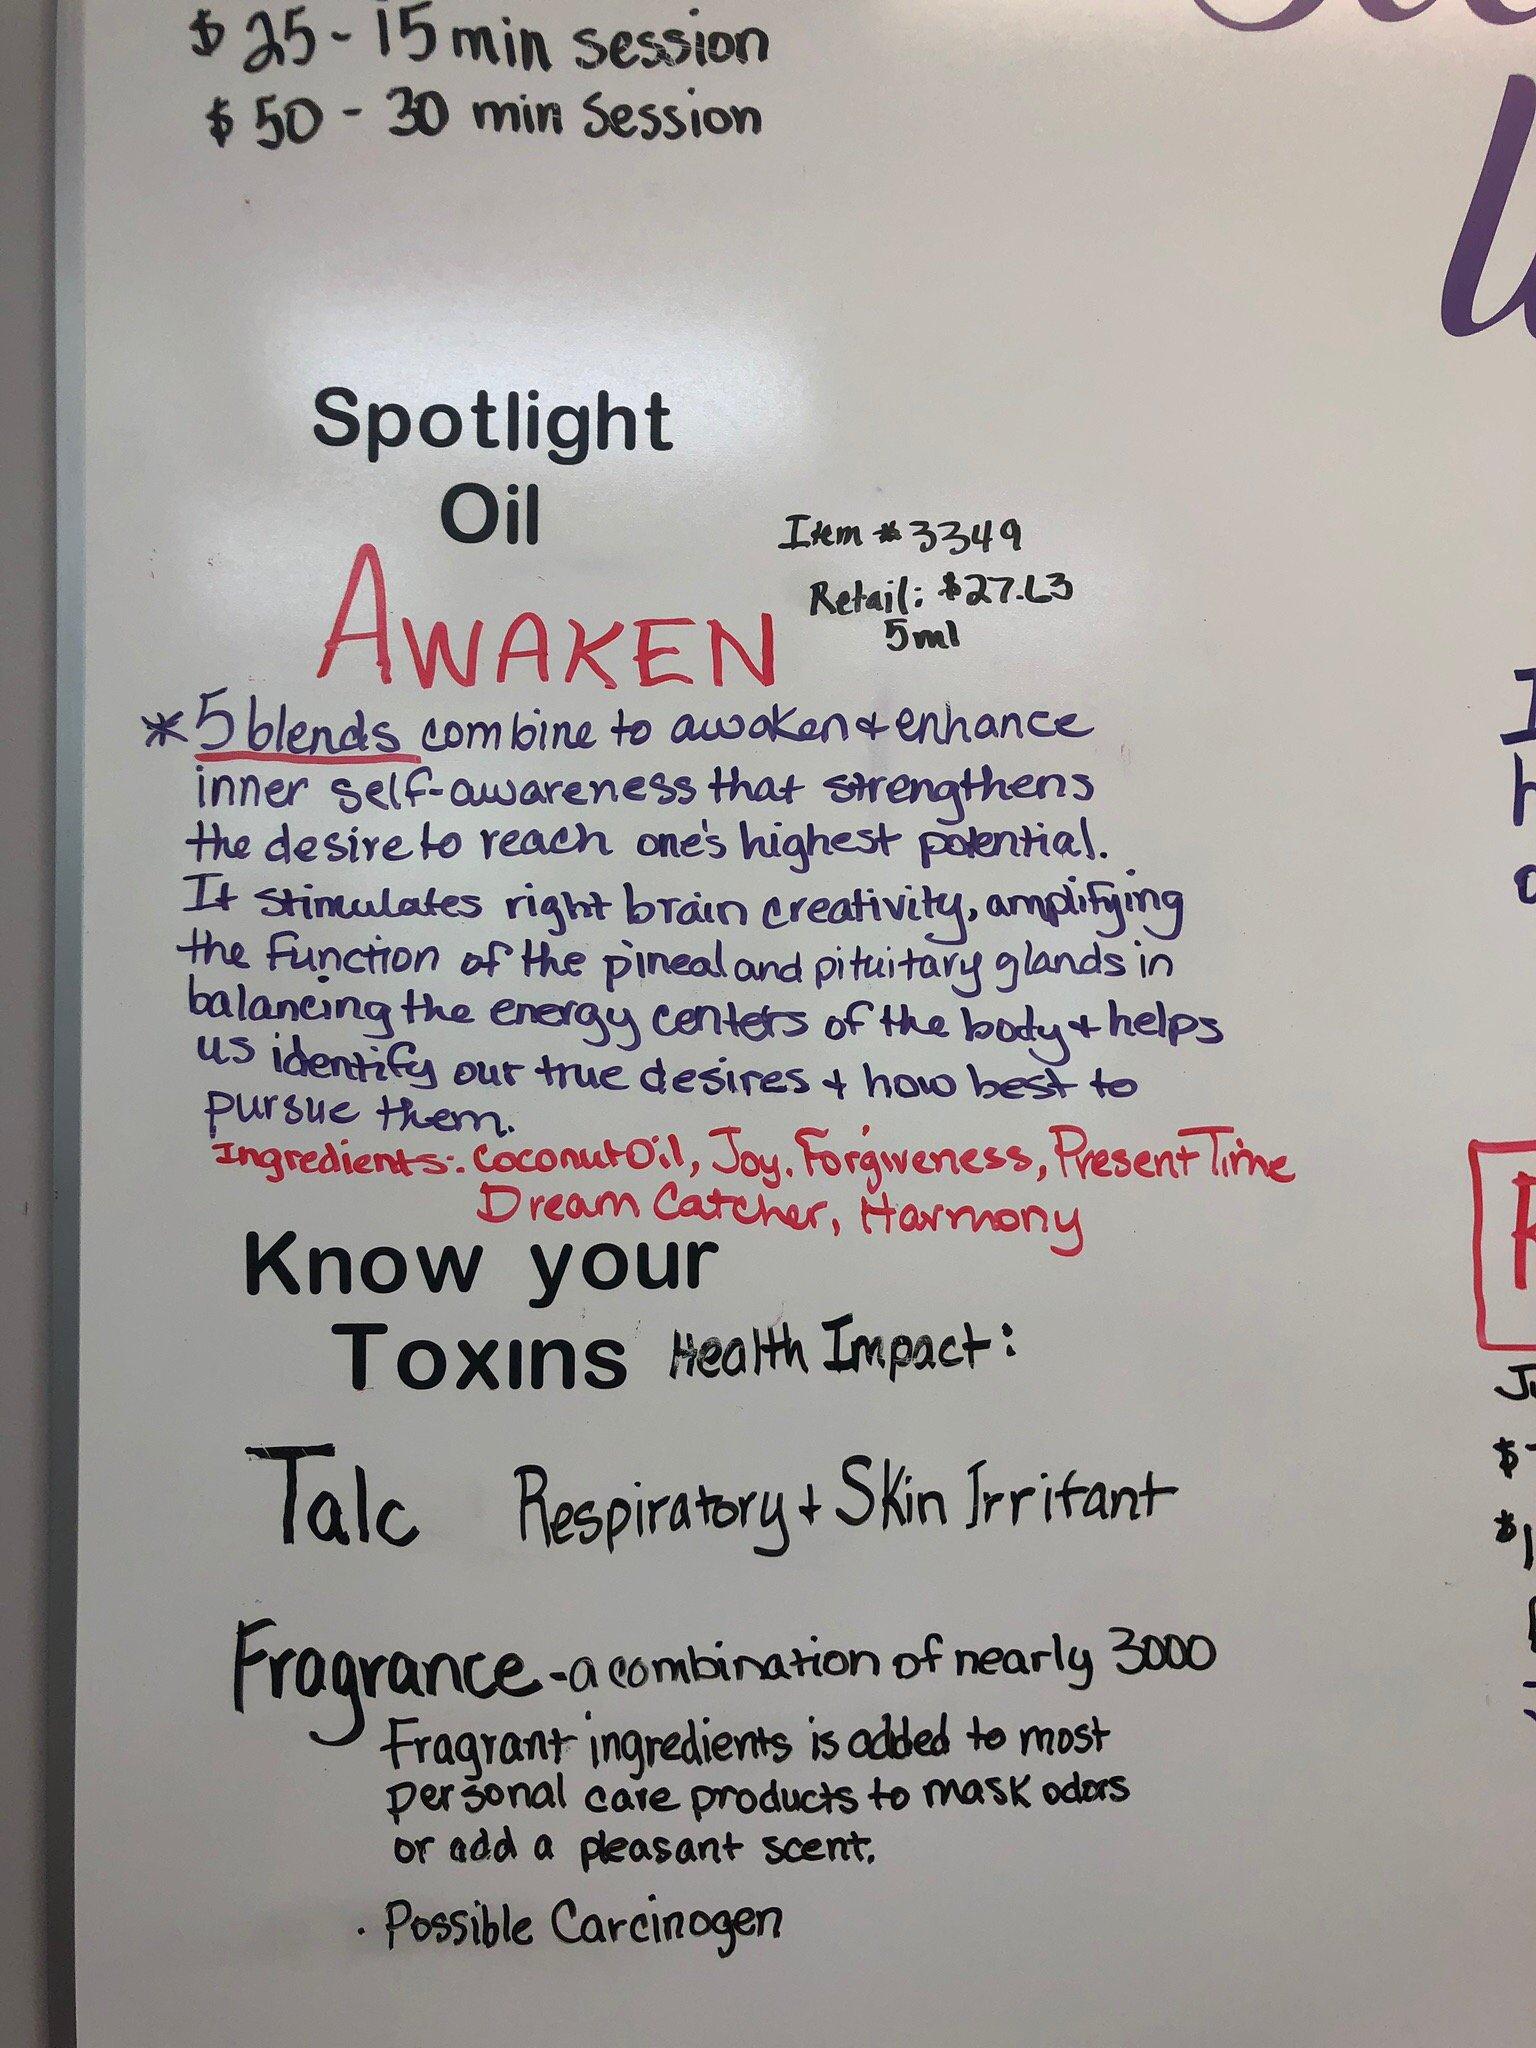 $25 - 15 min session
$50 - 30 min Session
Spotlight
Oil
Item #3349
Retail: $27.63
5ml
AWAKEN
*5 blends combine to awaken + enhance
inner self-awareness that strengthens
the desire to reach one's highest potential.
It stimulates right brain creativity, amplifying
the function of the pineal and pituitary glands in
balancing the energy centers of the body + helps
us identify our true desires + how best to
pursue them.
Ingredients: Coconut Oil, Joy, Forgiveness, Present Time
Dream Catcher, Harmony
Know your
Toxins Health Impact:
Talc Respiratory + Skin Irritant
Fragrance - a combination of nearly 3000
Fragrant ingredients is added to most
personal care products to mask odors
or add a pleasant scent.
· Possible Carcinogen